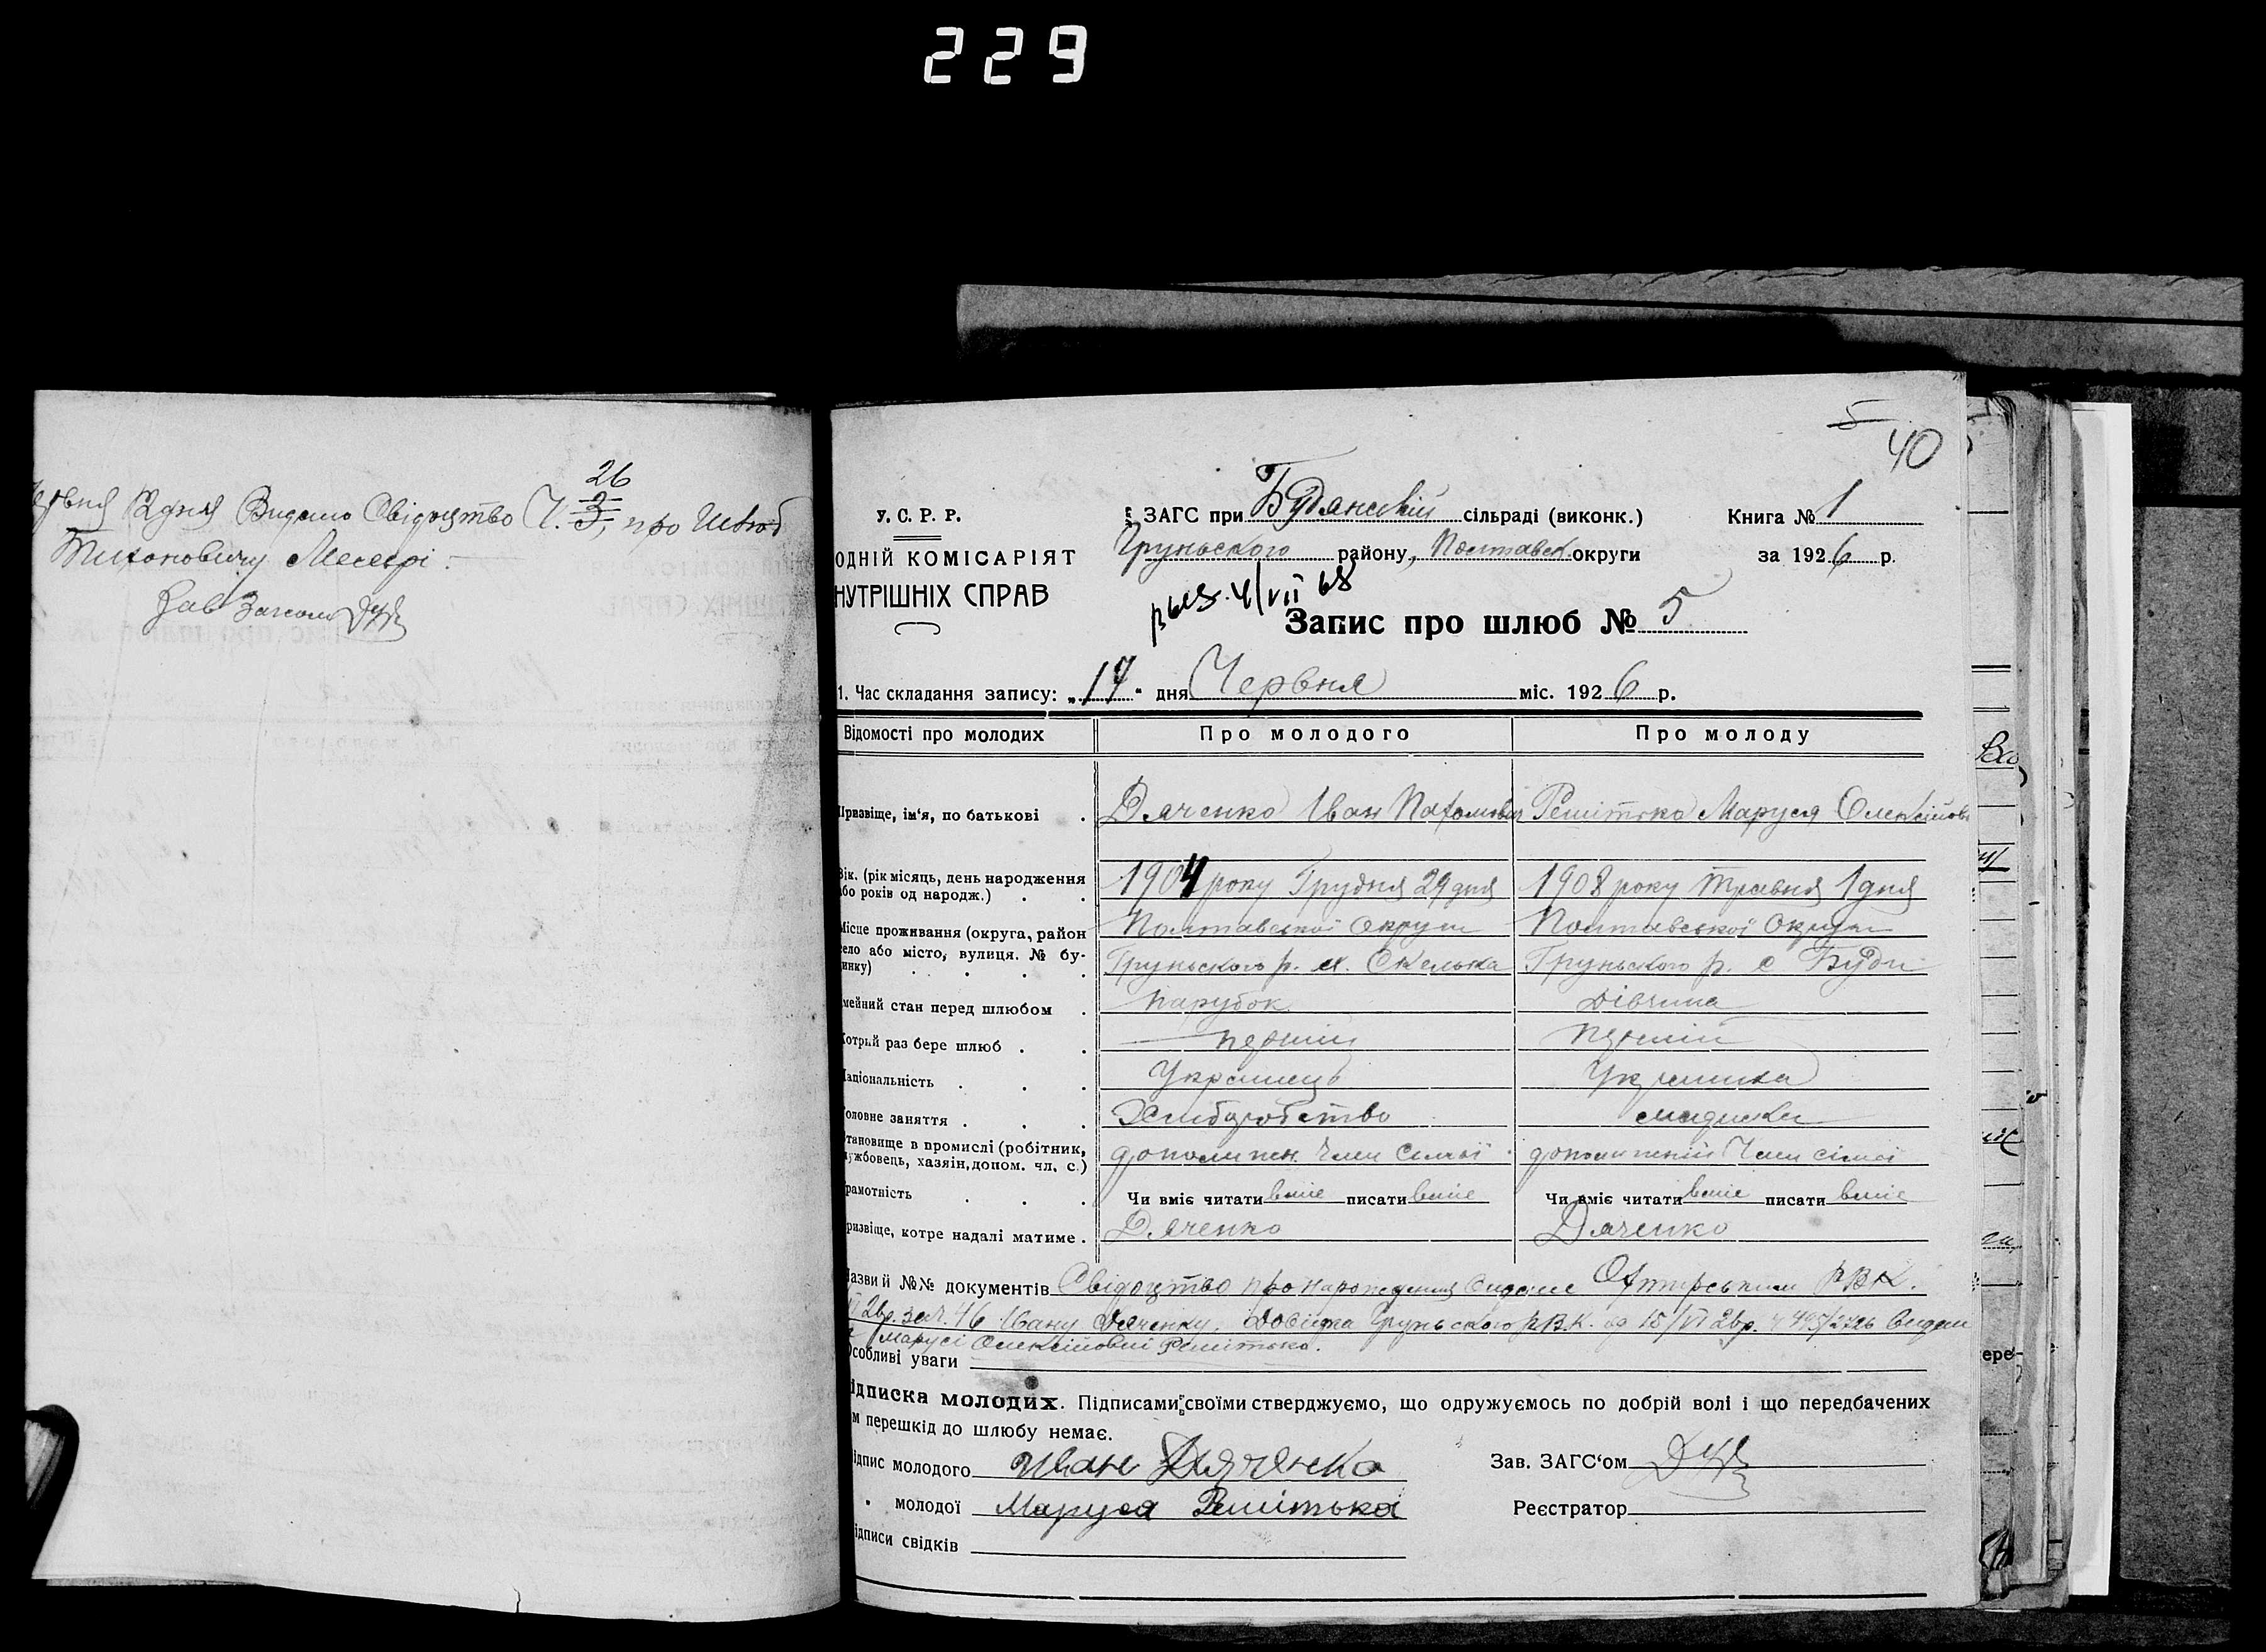 229
26
12 дня Видано Свідоцтво Ч. 3, про Шлюб
Тихоновичу
Зав Загсом
5
40
У. С. Р. Р.
ОДНІЙ КОМІСАРІЯТ
НУТРІШНІХ СПРАВ
ЗАГС при Будянській сільраді (виконк.)
Груньского району, Полтавськ округи
Книга № 1
за 1926 р.
4/VII 68
Запис про шлюб № 5
1. Час складання запису: „17“ дня Червня міс. 1926 р.
Відомості про молодих Про молодого Про молоду
Призвіще, ім'я, по батькові . Дяченко Іван Пахомович Решітько Маруся Олексіївн
Вік. (рік місяць, день народження
або років од народж.) . . 1904 року Грудня 29 дня 1908 року травня 1 дня
Місце проживання (округа, район
село або місто, вулиця. № бу-
инку) . . . . Полтавської Округи Полтавської Округи
Груньского р. х. Скелька Груньского р. с Буди
мейний стан перед шлюбом . парубок дівчина
Котрий раз бере шлюб . . перший перший
Національність . . . Українець Українка
оловне заняття . . . Хліборобство
тановище в промислі (робітник,
ужбовець, хазяін, допом. чл. с.) допоміжн. Член Сімьї допоміжний Член сімьї
рамотність . . . Чи вміє читати вміє писати вміє Чи вміє читати вміє писати вміє
ризвіще, котре надалі матиме . Дяченко Дяченко
Назви й №№ документів Свідоцтво про народження видане Охтирським РВК.
VI 26р. за ч. 46 Івану Дяченку. Довідка Груньского Р.В.К. од 15/VI 26р. ч 495/2726 видан
Марусі Олексіївні Решітько.
Особливі уваги
ідписка молодих. Підписами своїми стверджуємо, що одружуємось по добрій волі і що передбачених
м перешкід до шлюбу немає.
ідпис молодого Иван Дяченко Зав. ЗАГС‘ом
„ молодої Маруся Решітька Реєстратор
ідписи свідків
ере-